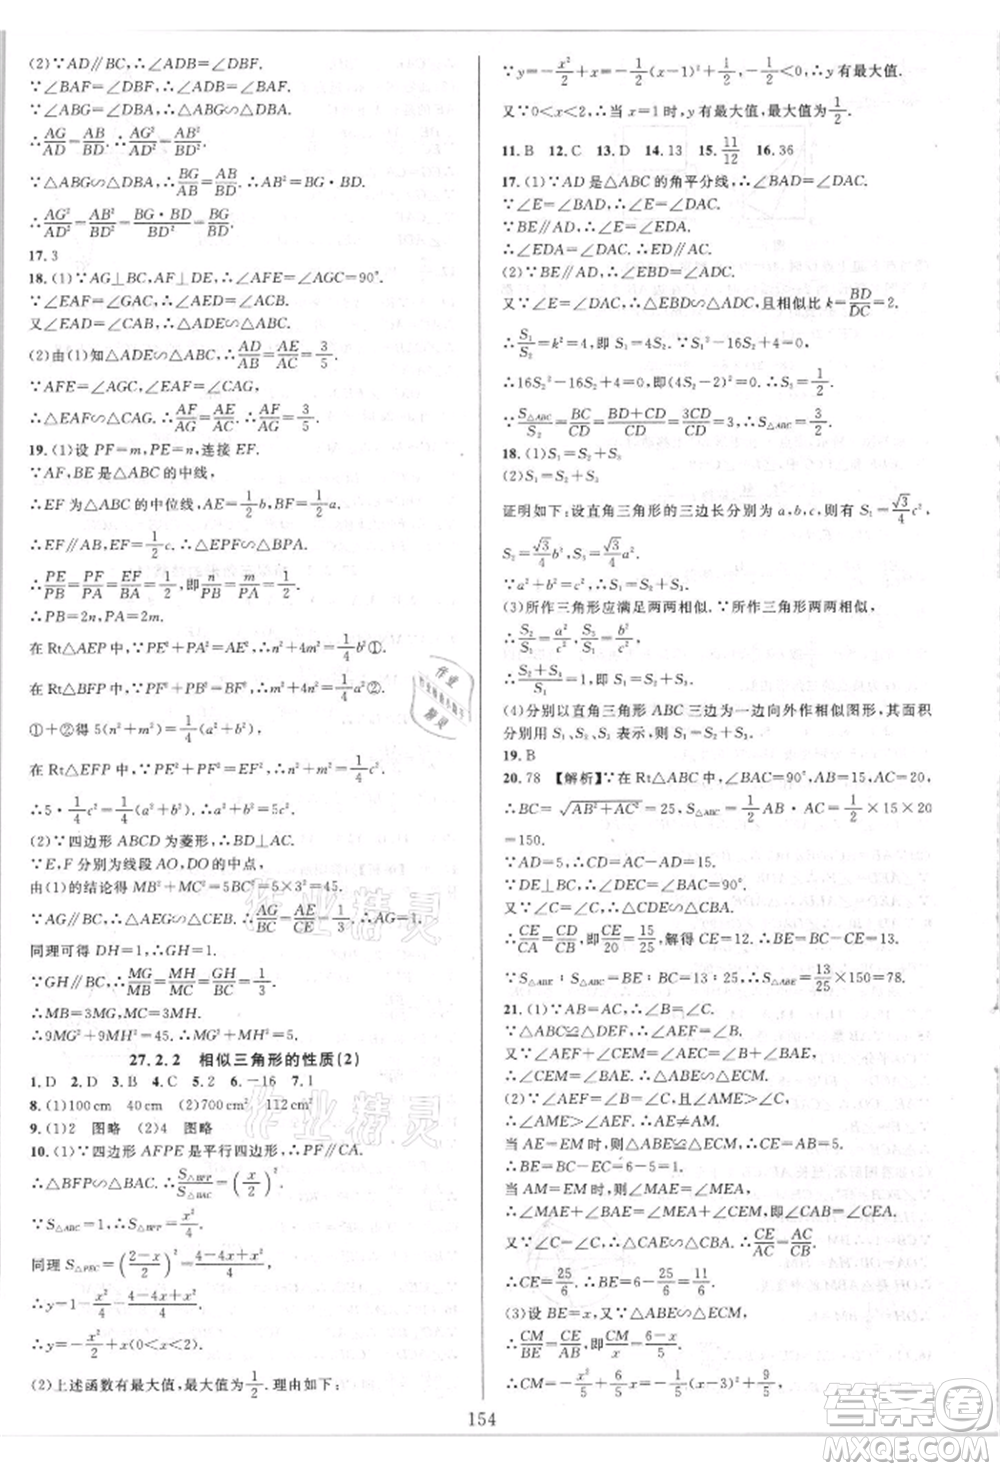 (2)∵AD∥BC,∴∠ADB=∠DBF.
∵∠BAF=∠DBF,∴∠BAF=∠ADB.
∵∠ABG=∠DBA,∴△ABG∽△DBA.
∴AG/AD=AB/BD.∴AG²/AD²=AB²/BD².
∵△ABG∽△DBA,∴BG/AB=AB/BD.
∴AG²/AD²=AB²/BD²=BG·BD/BD²=BG/BD.
17.3
18.(1)∵AG⊥BC,AF⊥DE,∴∠AFE=∠AGC=90°.
∵∠EAF=∠GAC,∴∠AED=∠ACB.
又∠EAD=∠CAB,∴△ADE∽△ABC.
(2)由(1)知△ADE∽△ABC,∴AD/AB=AE/AC=3/5.
∵∠AFE=∠AGC,∠EAF=∠CAG,
∴△EAF∽△CAG.∴AF/AG=AE/AC.∴AF/AG=3/5.
19.(1)设 PF=m,PE=n,连接 EF.
∵AF,BE是△ABC的中线,
∴EF为△ABC的中位线,AE=1/2b,BF=1/2a.
∴EF∥AB,EF=1/2c.∴△EPF∽△BPA.
∴PE/PB=PF/PA=EF/BA=1/2,即n/PB=m/PA=1/2.
∴PB=2n,PA=2m.
在 Rt△AEP中,∵PE²+PA²=AE²,∴n²+4m²=1/4b²①.
在 Rt△BFP中,∵PF²+PB²=BF²,∴m²+4n²=1/4a²②.
①+②得 5(n²+m²)=1/4(a²+b²).
在 Rt△EFP中,∵PE²+PF²=EF²,∴n²+m²=1/4c².
∴5·1/4c²=1/4(a²+b²).∴a²+b²=5c².
(2)∵四边形 ABCD为菱形,∴BD⊥AC.
∵E,F分别为线段AO,DO的中点,
由(1)的结论得 MB²+MC²=5BC²=5×3²=45.
∵AG∥BC,∴△AEG∽△CEB.∴AG/BC=AE/CE=1/3.∴AG=1.
同理可得 DH=1,∴GH=1.
∵GH∥BC,∴MG/MB=MH/MC=GH/BC=1/3.
∴MB=3MG,MC=3MH.
∴9MG²+9MH²=45.∴MG²+MH²=5.
27.2.2 相似三角形的性质(2)
1.D 2.D 3.B 4.C 5.2 6.-16 7.1
8.(1)100cm 40cm (2)700cm² 112cm²
9.(1)2 图略 (2)4 图略
10.(1)∵四边形 AFPE是平行四边形,∴PF∥CA.
∴△BFP∽△BAC.∴S△BFP/S△BAC=(x/2)².
∵S△ABC=1,∴S△BFP=x²/4.
同理 S△PEC=((2-x)/2)²=(4-4x+x²)/4.
∴y=1-x²/4-(4-4x+x²)/4.
∴y=-x²/2+x(0<x<2).
(2)上述函数有最大值,最大值为1/2.理由如下:
∵y=-x²/2+x=-1/2(x-1)²+1/2,-1/2<0,∴y有最大值.
又∵0<x<2,∴当 x=1时,y有最大值,最大值为1/2.
11.B 12.C 13.D 14.13 15.11/12 16.36
17.(1)∵AD是△ABC的角平分线,∴∠BAD=∠DAC.
∵∠E=∠BAD,∴∠E=∠DAC.
∵BE∥AD,∴∠E=∠EDA.
∴∠EDA=∠DAC.∴ED∥AC.
(2)∵BE∥AD,∴∠EBD=∠ADC.
又∵∠E=∠DAC,∴△EBD∽△ADC,且相似比 k=BD/DC=2.
∴S₁/S₂=k²=4,即 S₁=4S₂.∵S₁²-16S₂+4=0,
∴16S₂²-16S₂+4=0,即(4S₂-2)²=0.∴S₂=1/2.
∵S△ABC/S₂=BC/CD=(BD+CD)/CD=3CD/CD=3,∴S△ABC=3/2.
18.(1)S₁=S₂+S₃
(2)S₁=S₂+S₃.
证明如下:设直角三角形的三边长分别为 a,b,c,则有 S₁=√3/4c²,
S₂=√3/4b²,S₃=√3/4a².
∵a²+b²=c²,∴S₁=S₂+S₃.
(3)所作三角形应满足两两相似.∵所作三角形两两相似,
∴S₃/S₁=a²/c²,S₂/S₁=b²/c².
∴(S₂+S₃)/S₁=(a²+b²)/c²=1.∴S₁=S₂+S₃.
(4)分别以直角三角形 ABC三边为一边向外作相似图形,其面积
分别用 S₁、S₂、S₃表示,则 S₁=S₂+S₃.
19.B
20.78 【解析】∵在 Rt△ABC中,∠BAC=90°,AB=15,AC=20,
∴BC=√(AB²+AC²)=25,S△ABC=1/2AB·AC=1/2×15×20
=150.
∵AD=5,∴CD=AC-AD=15.
∵DE⊥BC,∴∠DEC=∠BAC=90°.
又∵∠C=∠C,∴△CDE∽△CBA.
∴CE/CA=CD/CB,即CE/20=15/25,解得 CE=12.∴BE=BC-CE=13.
∵S△ABE∶S△ABC=BE∶BC=13∶25,∴S△ABE=13/25×150=78.
21.(1)∵AB=AC,∴∠B=∠C.
∵△ABC≌△DEF,∴∠AEF=∠B.
又∵∠AEF+∠CEM=∠AEC=∠B+∠BAE,
∴∠CEM=∠BAE.∴△ABE∽△ECM.
(2)∵∠AEF=∠B=∠C,且∠AME>∠C,
∴∠AME>∠AEF.∴AE≠AM.
当 AE=EM时,则△ABE≌△ECM.∴CE=AB=5.
∴BE=BC-EC=6-5=1.
当 AM=EM时,则∠MAE=∠MEA.
∴∠MAE+∠BAE=∠MEA+∠CEM,即∠CAB=∠CEA.
又∵∠C=∠C,∴△CAE∽△CBA.∴CE/AC=AC/CB.
∴CE=25/6.∴BE=6-25/6=11/6.∴BE=1或11/6.
(3)设 BE=x,又∵△ABE∽△ECM,
∴CM/BE=CE/AB,即CM/x=(6-x)/5.
∴CM=-x²/5+6/5x=-1/5(x-3)²+9/5.
154
作业
精灵
作业精灵
作业精灵
答案圈
MXQE.COM